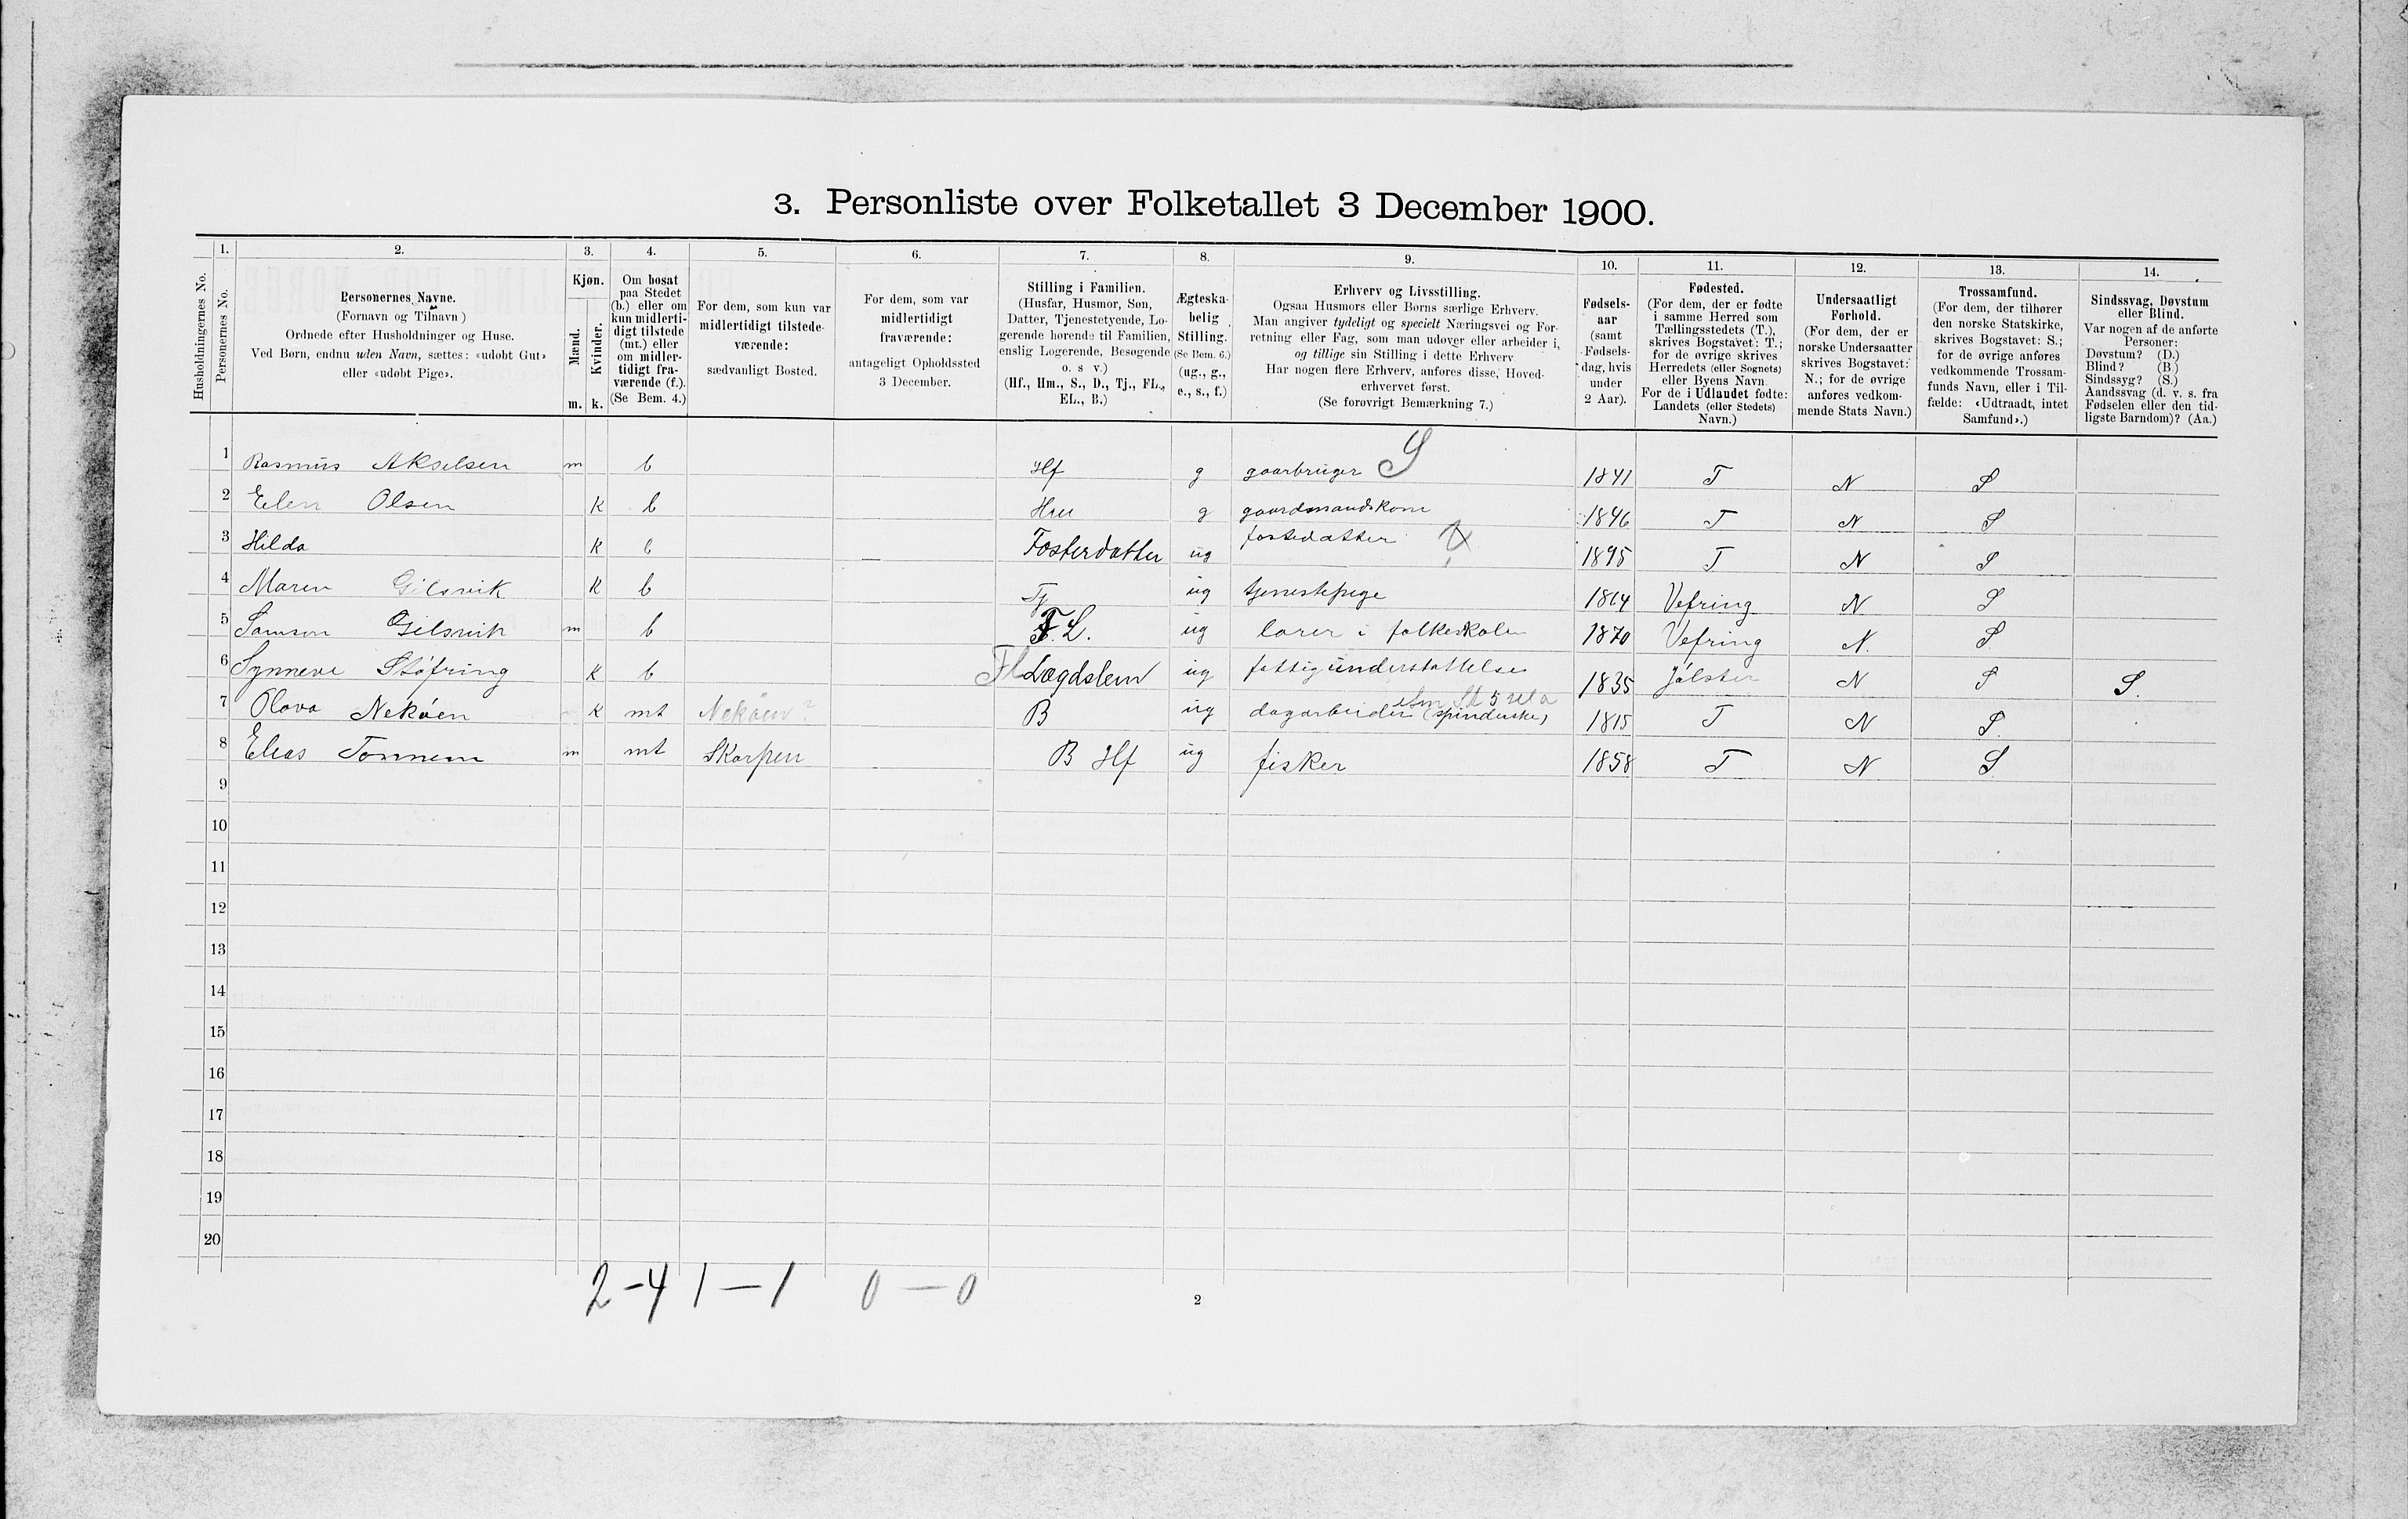 3. Personliste over Folketallet 3 December 1900.
Husholdningernes No.
1.
Personernes No.
2.
Personernes Navne.
(Fornavn og Tilnavn)
Ordnede efter Husholdninger og Huse.
Ved Børn, endnu uden Navn, sættes: «udøbt Gut»
eller «udøbt Pige».
3.
Kjøn.
Mænd.
Kvinder.
m. k.
4.
Om bosat
paa Stedet
(b.) eller om
kun midlerti-
digt tilstede
(mt.) eller
om midler-
tidigt fra-
værende (f.).
(Se Bem. 4.)
5.
For dem, som kun var
midlertidigt tilstede-
værende:
sædvanligt Bosted.
6.
For dem, som var
midlertidigt
fraværende:
antageligt Opholdssted
3 December.
7.
Stilling i Familien.
(Husfar, Husmor, Søn,
Datter, Tjenestetyende, Lo-
gerende hørende til Familien,
enslig Logerende, Besøgende
o. s v.)
(Hf., Hm., S., D., Tj., FL.,
EL., B.)
8.
Ægteska-
belig
Stilling.
(Se Bem. 6.)
(ug., g.,
e., s., f.)
9.
Erhverv og Livsstilling.
Ogsaa Husmors eller Børns særlige Erhverv.
Man angiver tydeligt og specielt Næringsvei og For-
retning eller Fag, som man udøver eller arbeider i,
og tillige sin Stilling i dette Erhverv.
Har nogen flere Erhverv, anføres disse, Hoved-
erhvervet først.
(Se forøvrigt Bemærkning 7.)
10.
Fødsels-
aar
(samt
Fødsels-
dag, hvis
under
2 Aar).
11.
Fødested.
(For dem, der er fødte
i samme Herred som
Tællingsstedets (T.),
skrives Bogstavet: T.;
for de øvrige skrives
Herredets (eller Sognets)
eller Byens Navn.
For de i Udlandet fødte:
Landets (eller Stedets)
Navn.)
12.
Undersaatligt
Forhold.
(For dem, der er
norske Undersaatter
skrives Bogstavet:
N.; for de øvrige
anføres vedkom-
mende Stats Navn.)
13.
Trossamfund.
(For dem, der tilhører
den norske Statskirke,
skrives Bogstavet: S.;
for de øvrige anføres
vedkommende Trossam-
funds Navn, eller i Til-
fælde: «Udtraadt, intet
Samfund».)
14.
Sindssvag, Døvstum
eller Blind.
Var nogen af de anførte
Personer:
Døvstum? (D.)
Blind? (B.)
Sindssyg? (S.)
Aandssvag (d. v. s. fra
Fødselen eller den tid-
ligste Barndom)? (Aa.)
1 Rasmus Akselsen m b Hf g gaarbruger S 1841 T N S
2 Elen Olsen k b Hm g gaardmandskone 1846 T N S
3 Hilda k b Fosterdatter ug fostedatter 1895 T N S
4 Maren Gilsvik k b Tj ug tjenestepige 1864 Vefring N S
5 Samson Gilsvik m b F.L. ug lærer i folkeskolen 1870 Vefring N. S
6 Synneve Støfring k b Fl Lægdslem ug fattigunderstøttelse 1835 Jølster N S S.
7 Olava Nekøen k mt Nekøen? B ug dagarbeider (spinderske) 1815 T N S.
8 Elias Tonnem m mt Skorpen B Hf ug fisker 1858 T N S
9
10
11
12
13
14
15
16
17
18
19
20
2-4 1-1 0-0
2